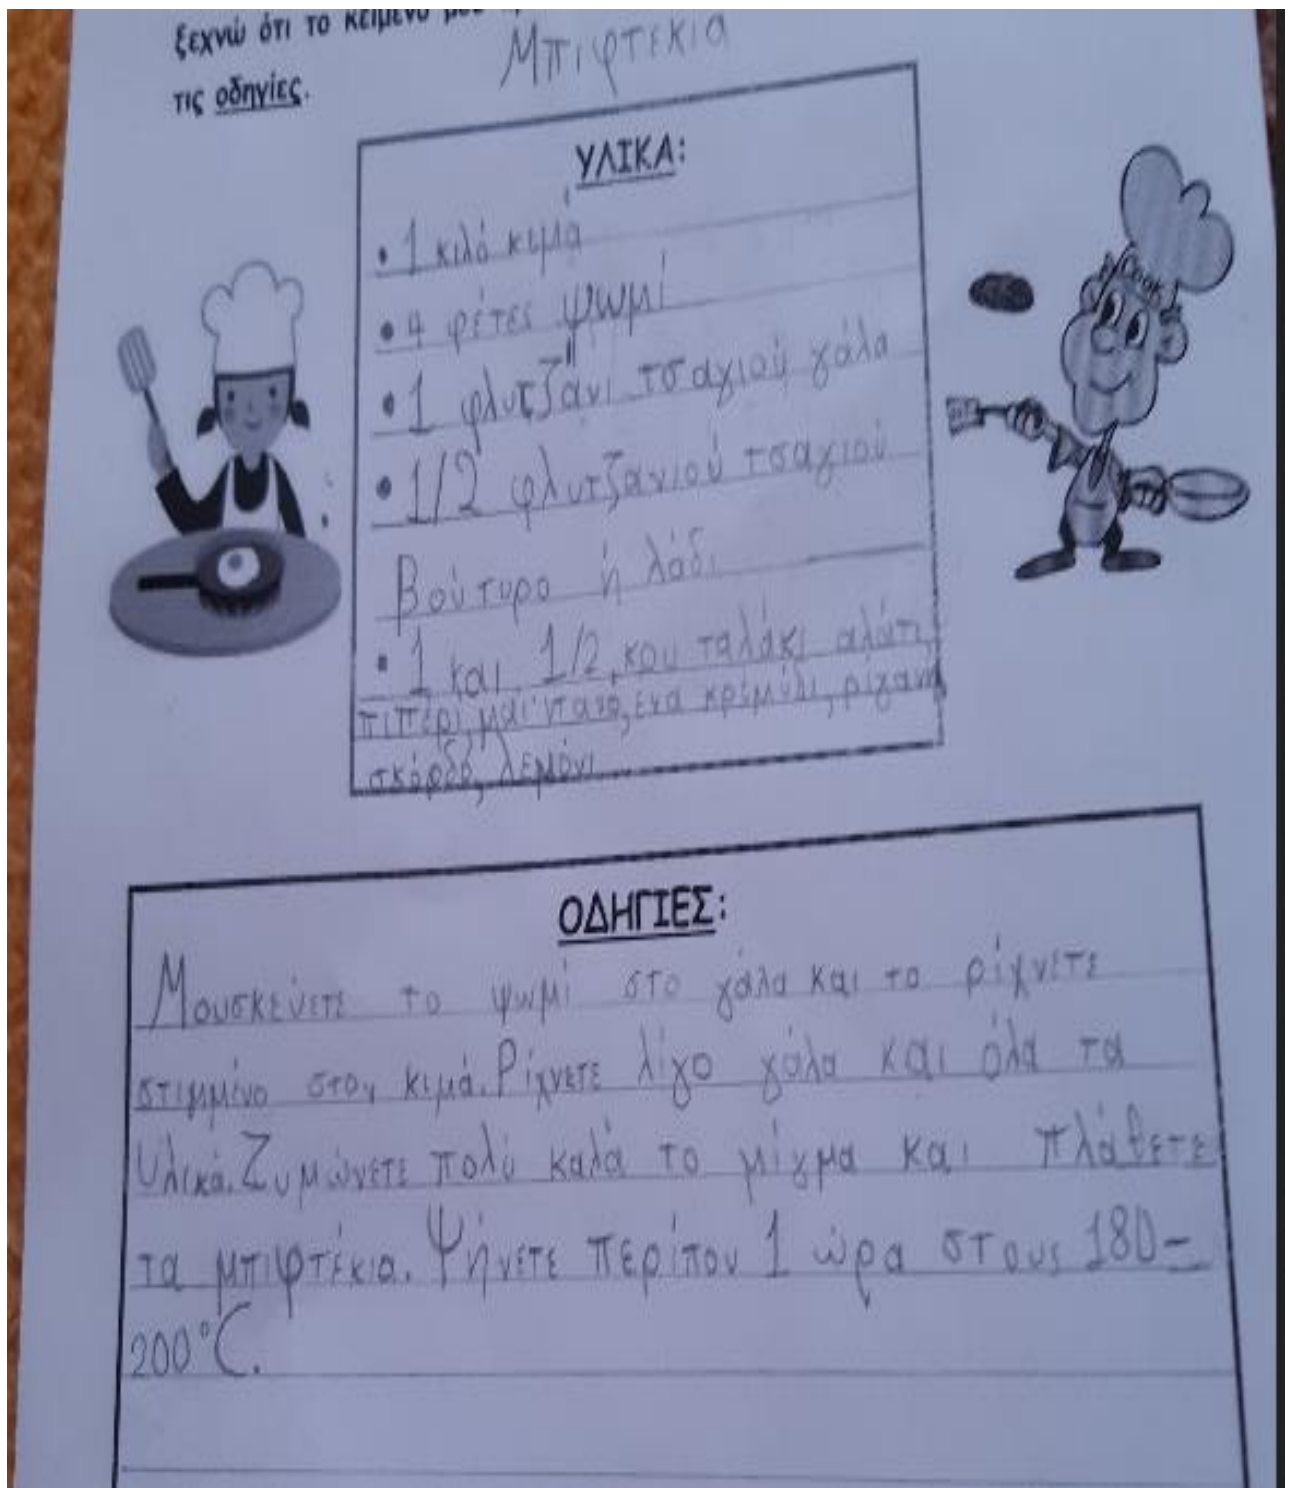 ξεχνώ ότι το κείμενο μου
τις οδηγίες.
Μπιφτεκια
ΥΛΙΚΑ:
• 1 κιλό κιμά
• 4 φέτες ψωμί
• 1 φλυτζάνι τσαγιού γάλα
• 1/2 φλυτζανιού τσαγιού
Βούτυρο ή λάδι
• 1 και 1/2 κουταλάκι αλάτι,
πιπέρι, μαϊντανό, ένα κρεμύδι, ρίγανη
σκόρδο, λεμόνι
Cook
ΟΔΗΓΙΕΣ:
Μουσκεύετε το ψωμί στο γάλα και το ρίχνετε
στιμμένο στον κιμά. Ρίχνετε λίγο γάλα και όλα τα
υλικά. Ζυμώνετε πολύ καλά το μίγμα και πλάθετε
τα μπιφτέκια. Ψήνετε περίπου 1 ώρα στους 180-
200°C.